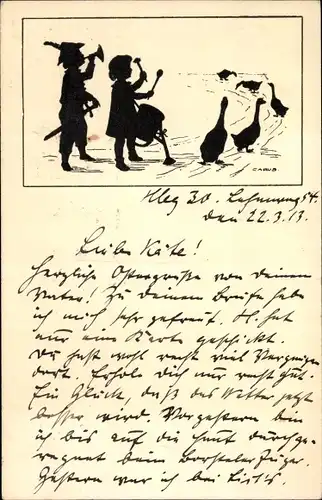 CARUS.
Hbg 30. 54.
den 22.3.13.
Liebe Käte!
Herzliche Ostergrüße von deinem
Vater! Zu deinem Briefe habe
ich mich sehr gefreut. H. hat
nur eine Karte geschickt.
Du hast wohl recht viel Vergnügen
dort. Erhole dich nur recht gut.
Ein Glück, daß das Wetter jetzt
besser wird. Vorgestern bin
ich bis auf die Haut durchge-
regnet beim Borsteler Jäger.
Gestern war ich bei